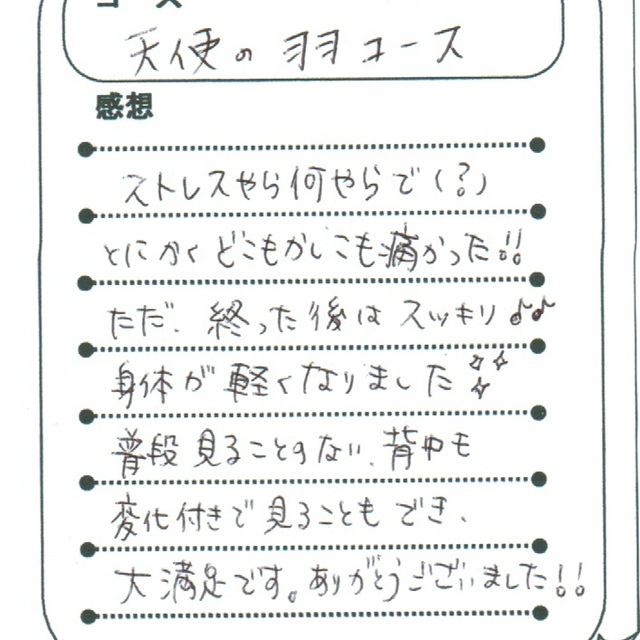 コース
天使の羽コース
感想
ストレスやら何やらで(?)
とにかくどこもかしこも痛かった!!
ただ、終った後はスッキリ♪♪
身体が軽くなりました✧✧✧
普段見ることのない、背中も
変化付きで見ることもでき、
大満足です。ありがとうございました!!